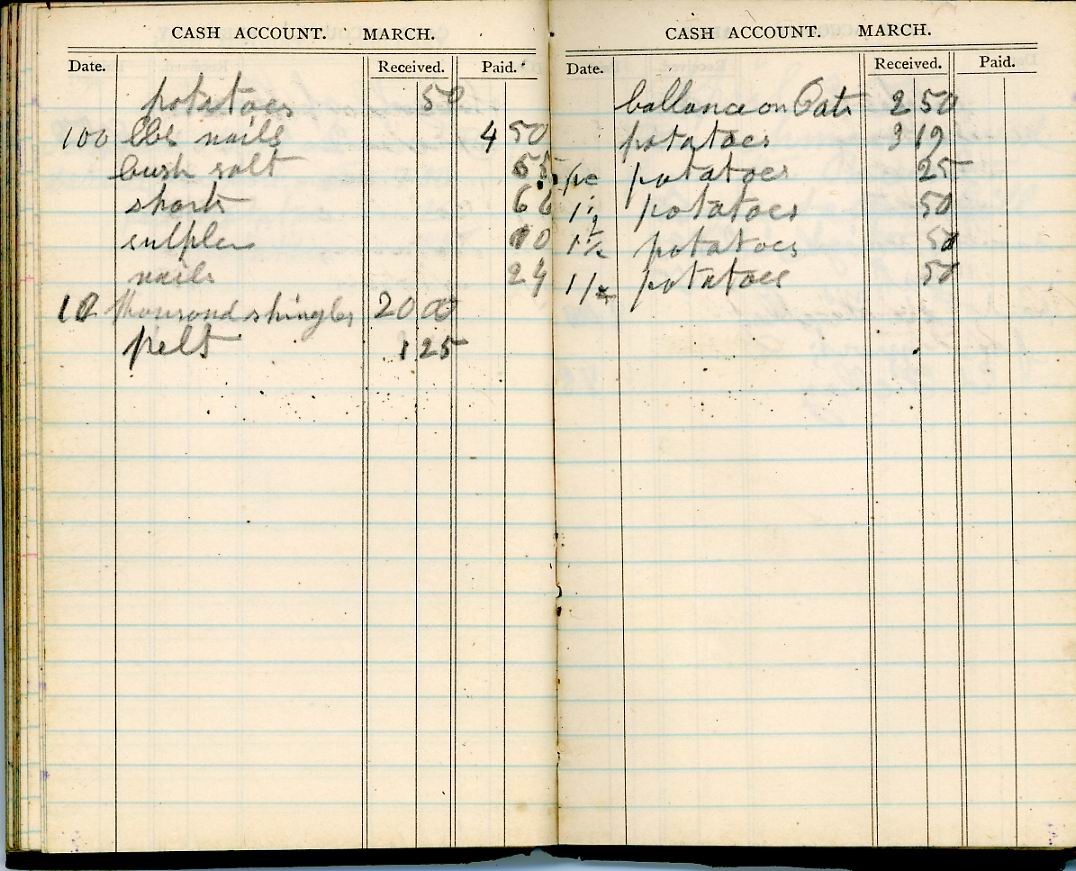 CASH ACCOUNT. MARCH.
Date. Received. Paid.
potatoes 50
100 lbs nails 4 50
bush salt 55
shorts 66
sulpher 10
nails 24
10 thousond shingles 20 00
pelt 1 25
CASH ACCOUNT. MARCH.
Date. Received. Paid.
ballance on Oats 2 50
potatoes 3 19
potatoes 25
1½ potatoes 50
1½ potatoes 50
potatoes 50